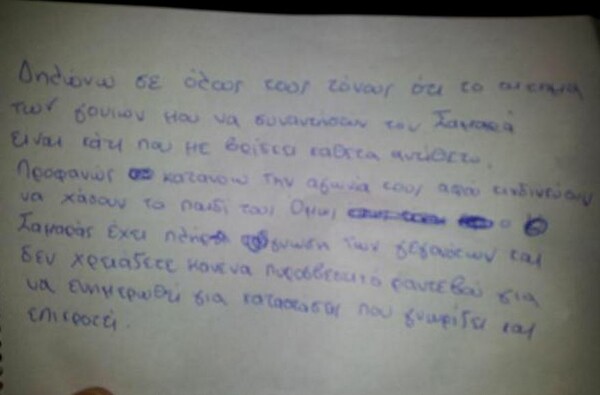 Δηλώνω σε όλους τους τόνους ότι το αίτημα
των γονιων μου να συναντήσουν τον Σαμαρά
ειναι κάτι που με βρίσκει κάθετα αντίθετο.
Προφανώς κατανοω την αγωνία τους αφου κινδινεύουν
να χάσουν το παιδί τους Ομως ο
Σαμαράς έχει πλήρη γνωση των γεγονότων και
δεν χρειάζετε κανενα πυροσβεστικό ραντεβού για
να ενημερωθεί για καταστασεις που γνωρίζει και
επικροτεί.